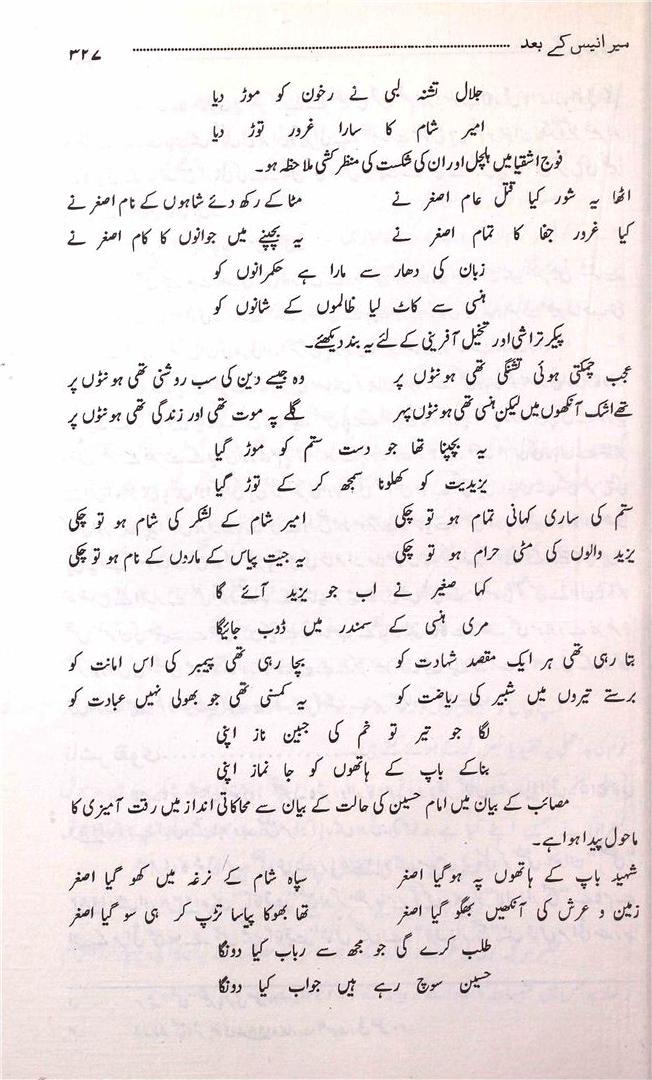 میر انیس کے بعد ................ ۳۲۷
جلال تشنہ لبی نے رخون کو موڑ دیا
امیر شام کا سارا غرور توڑ دیا
فوج اشقیا میں ہلچل اور ان کی شکست کی منظر کشی ملاحظہ ہو۔
اٹھا یہ شور کیا قتل عام اصغر نے مٹا کے رکھ دئے شاہوں کے نام اصغر نے
کیا غرور جفا کا تمام اصغر نے یہ بچپنے میں جوانوں کا کام اصغر نے
زبان کی دھار سے مارا ہے حکمرانوں کو
ہنسی سے کاٹ لیا ظالموں کے شانوں کو
پیکر تراشی اور تخیل آفرینی کے لئے یہ بند دیکھئے۔
عجب چمکتی ہوئی تشنگی تھی ہونٹوں پر وہ جیسے دین کی سب روشنی تھی ہونٹوں پر
تھے اشک آنکھوں میں لیکن ہنسی تھی ہونٹوں پہر گلے پہ موت تھی اور زندگی تھی ہونٹوں پر
یہ بچپنا تھا جو دست ستم کو موڑ گیا
یزیدیت کو کھلونا سمجھ کر کے توڑ گیا
ستم کی ساری کہانی تمام ہو تو چکی امیر شام کے لشکر کی شام ہو تو چکی
یزید والوں کی مٹی حرام ہو تو چکی یہ جیت پیاس کے ماروں کے نام ہو تو چکی
کہا صغیر نے اب جو یزید آئے گا
مری ہنسی کے سمندر میں ڈوب جائیگا
بتا رہی تھی ہر ایک مقصد شہادت کو بچا رہی تھی پیمبر کی اس امانت کو
برستے تیروں میں شبیر کی ریاضت کو یہ کمسنی تھی جو بھولی نہیں عبادت کو
لگا جو تیر تو خم کی جبین ناز اپنی
بنا کے باپ کے ہاتھوں کو جا نماز اپنی
مصائب کے بیان میں امام حسین کی حالت کے بیان سے محاکاتی انداز میں رقت آمیزی کا
ماحول پیدا ہوا ہے۔
شہید باپ کے ہاتھوں پہ ہو گیا اصغر سپاہ شام کے نرغہ میں کھو گیا اصغر
زمین و عرش کی آنکھیں بھگو گیا اصغر تھا بھوکا پیاسا تڑپ کر ہی سو گیا اصغر
طلب کرے گی جو مجھ سے رباب کیا دونگا
حسین سوچ رہے ہیں جواب کیا دونگا